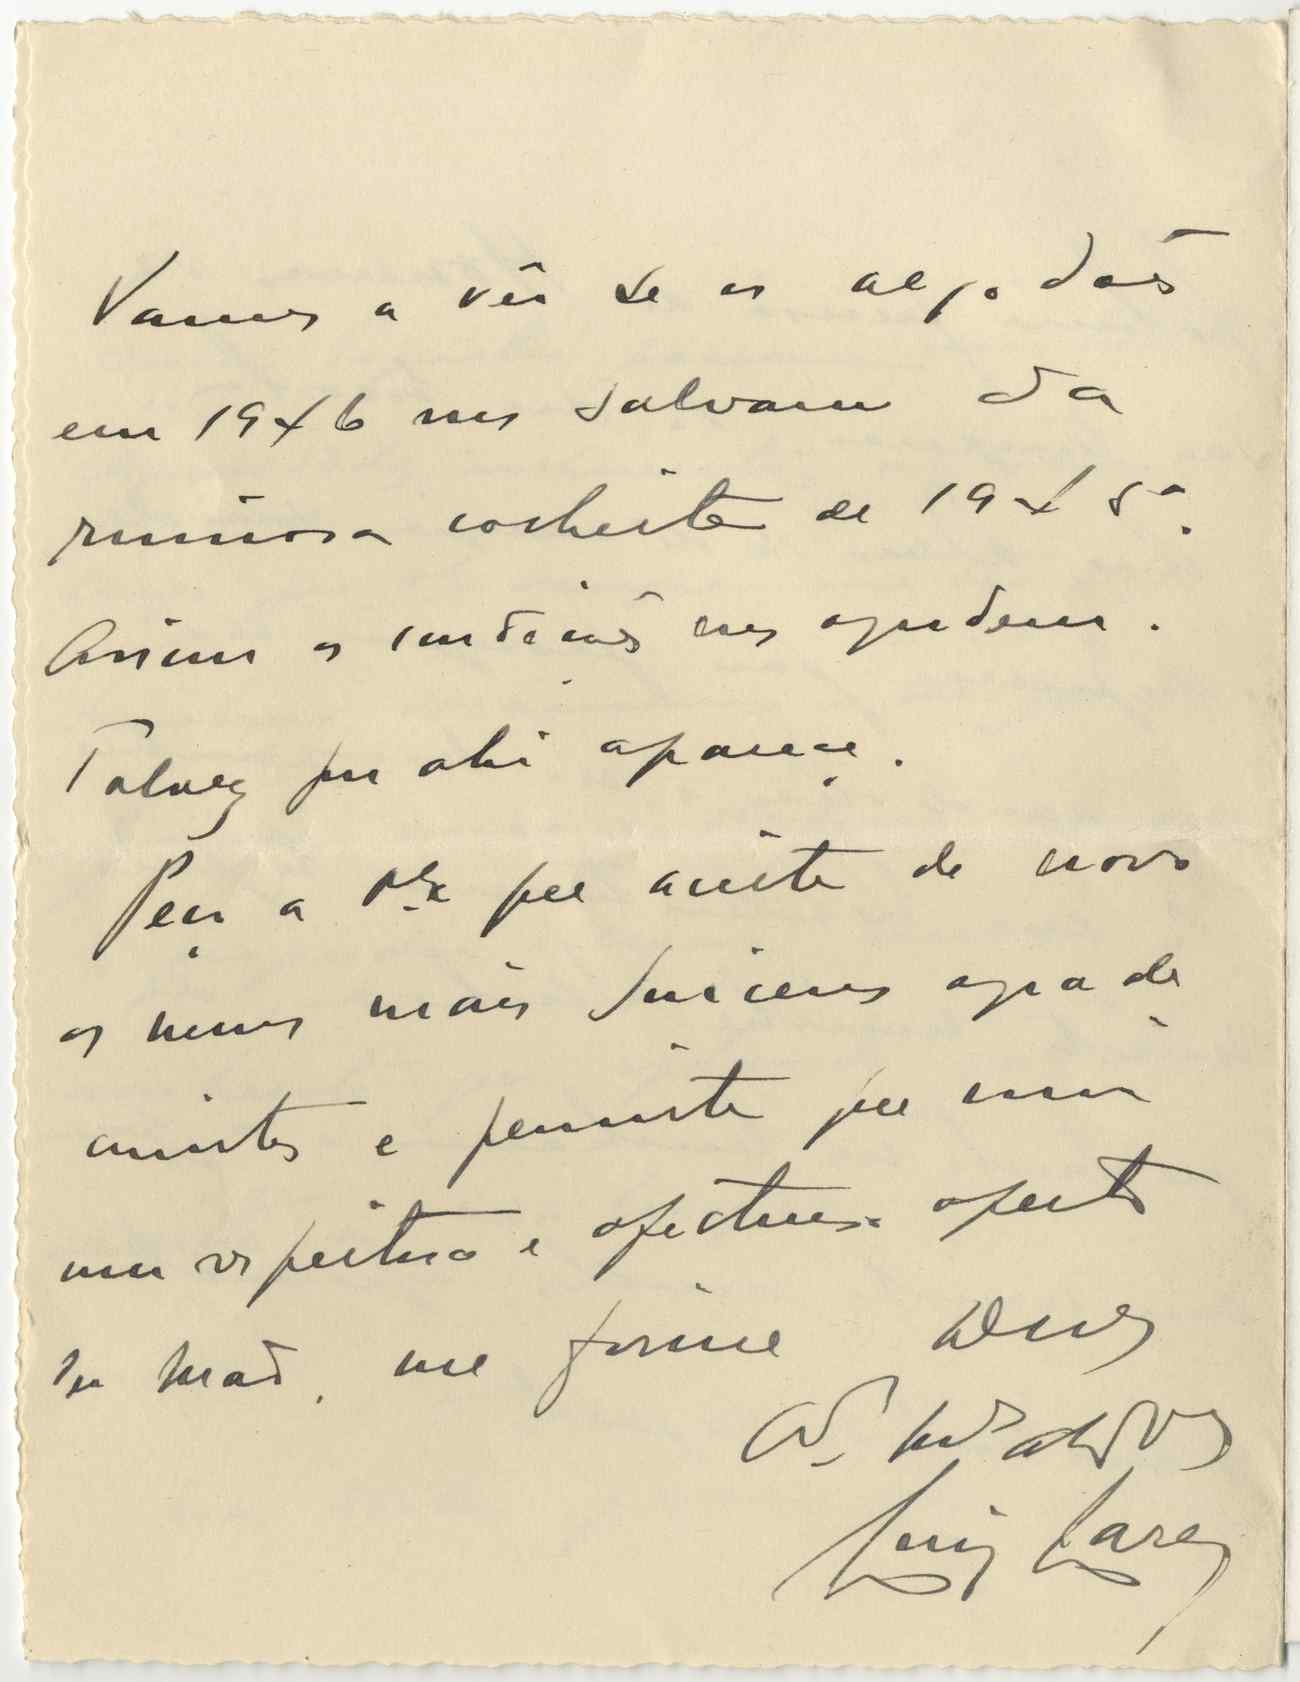 Vamos a vêr se os algodões
em 1946 nos salvam da
ruinosa colheita de 1945.
Assim as condições nos ajudem.
Talvez por ahi apareça.
Peço a V. Ex.ª que aceite de novo
os meus mais sinceros agrade
cimentos e permita que com
um respeitoso e afectuoso aperto
de mão, me firme
Luiz Lares